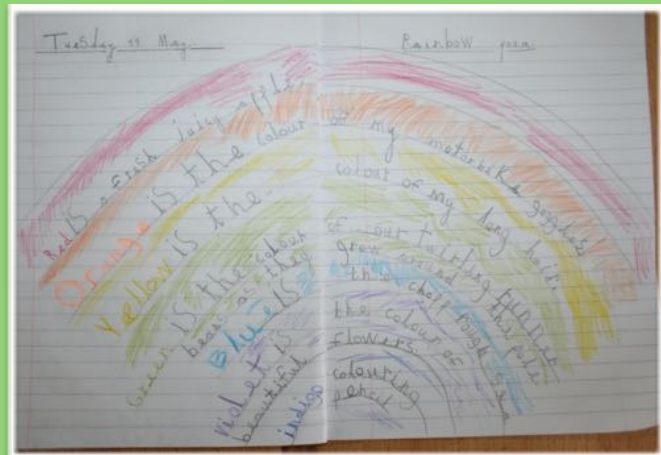 Tuesday 11 May.
Rainbow poem
Red is a fresh juicy apple
Orange is the colour of my motorbike goggles
Yellow is the. colour of my long hair.
Green is the colour of our twirling runner
beans as they grow around the pole
Blue is the rough sea
Violet is the colour of
beautiful flowers.
indigo colouring
pencil